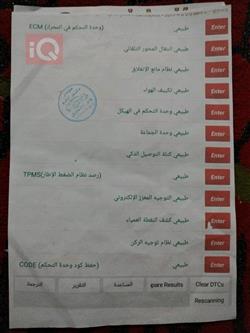 ECM (وحدة التحكم في المحرك) طبيعي Enter
IQ
انتقال المحور التلقائي طبيعي Enter
نظام مانع الإنغلاق طبيعي Enter
تكييف الهواء طبيعي Enter
وحدة التحكم في الهيكل طبيعي Enter
وحدة الجماعة طبيعي Enter
كتلة التوصيل الذكي طبيعي Enter
TPMS(رصد نظام الضغط الإطار) طبيعي Enter
التوجيه المعزز الإلكتروني طبيعي Enter
كشف النقطة العمياء طبيعي Enter
نظام توجيه الركن طبيعي Enter
CODE (حفظ كود وحدة التحكم) طبيعي Enter
الترجمة التقرير المساعدة pare Results Clear DTCs
Rescanning